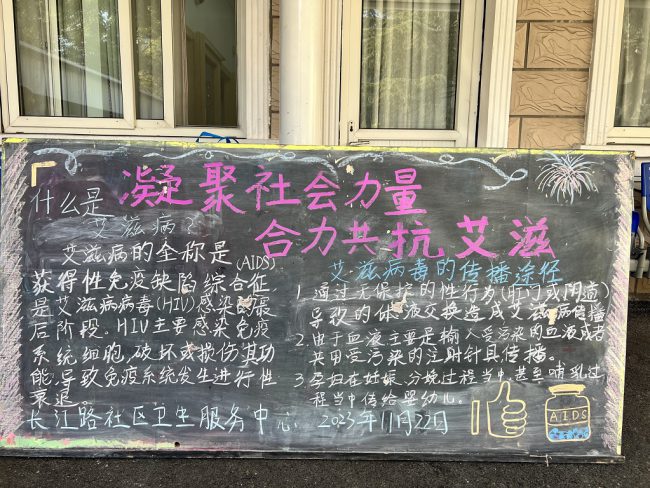 凝聚社会力量
合力共抗艾滋
什么是
艾滋病？
艾滋病的全称是(AIDS)
获得性免疫缺陷综合征
是艾滋病病毒(HIV)感染的最
后阶段。HIV主要感染免疫
系统细胞,破坏或损伤其功
能,导致免疫系统发生进行性
衰退。
艾滋病毒的传播途径
1.通过无保护的性行为(肛门或阴道)
导致的体液交换造成艾滋病传播
2.由于血液主要是输入受污染的血液或者
共用受污染的注射针具传播。
3.孕妇在妊娠、分娩过程当中,甚至哺乳过
程当中传给婴幼儿。
长江路社区卫生服务中心 2023年11月22日
AIDS